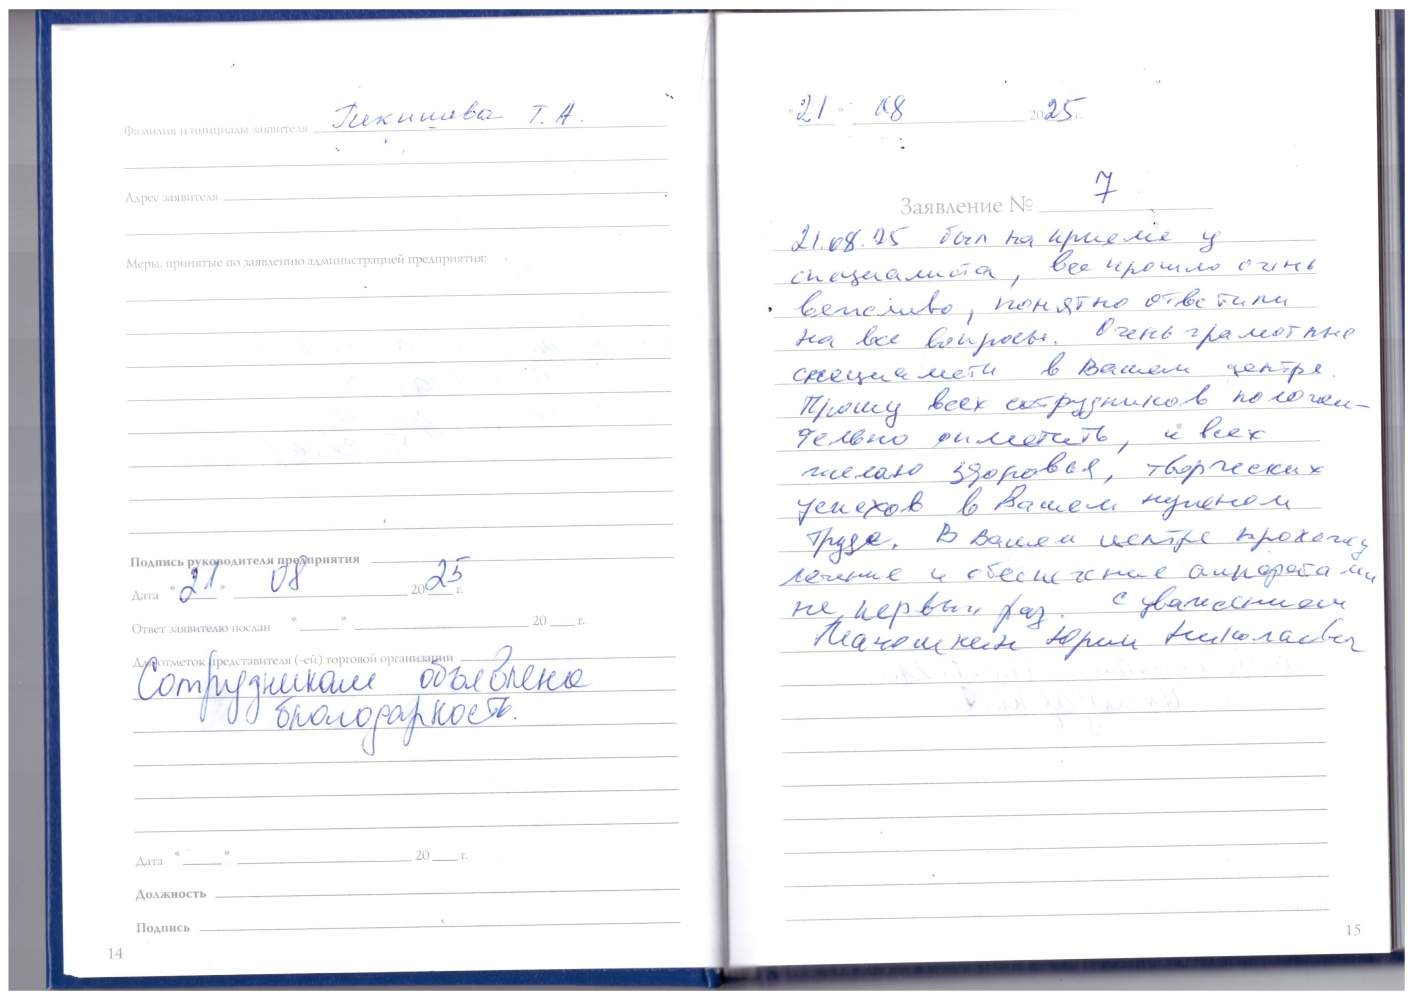 Фамилия и инициалы заявителя Пикишева Т. А.
Адрес заявителя
Меры, принятые по заявлению администрацией предприятия:
Подпись руководителя предприятия
Дата "21" 08 2025 г.
Ответ заявителю послан "____" 20 ___ г.
Для отметок представителя (-ей) торговой организации
Сотрудникам объявлена
благодарность.
Дата "____" 20 ___ г.
Должность
Подпись
14
"21" 08 2025 г.
Заявление № 7
21.08.25 был на приеме у
специалиста, все прошло очень
вежливо, понятно ответили
на все вопросы. Очень грамотные
специалисты в Вашем центре.
Прошу всех сотрудников положи-
тельно отметить, и всех
желаю здоровья, творческих
успехов в Вашем нужном
труде. В Вашем центре прохожу
лечение и обеспечение аппаратами
не первый раз. С уважением
Юрий Николаевич
15